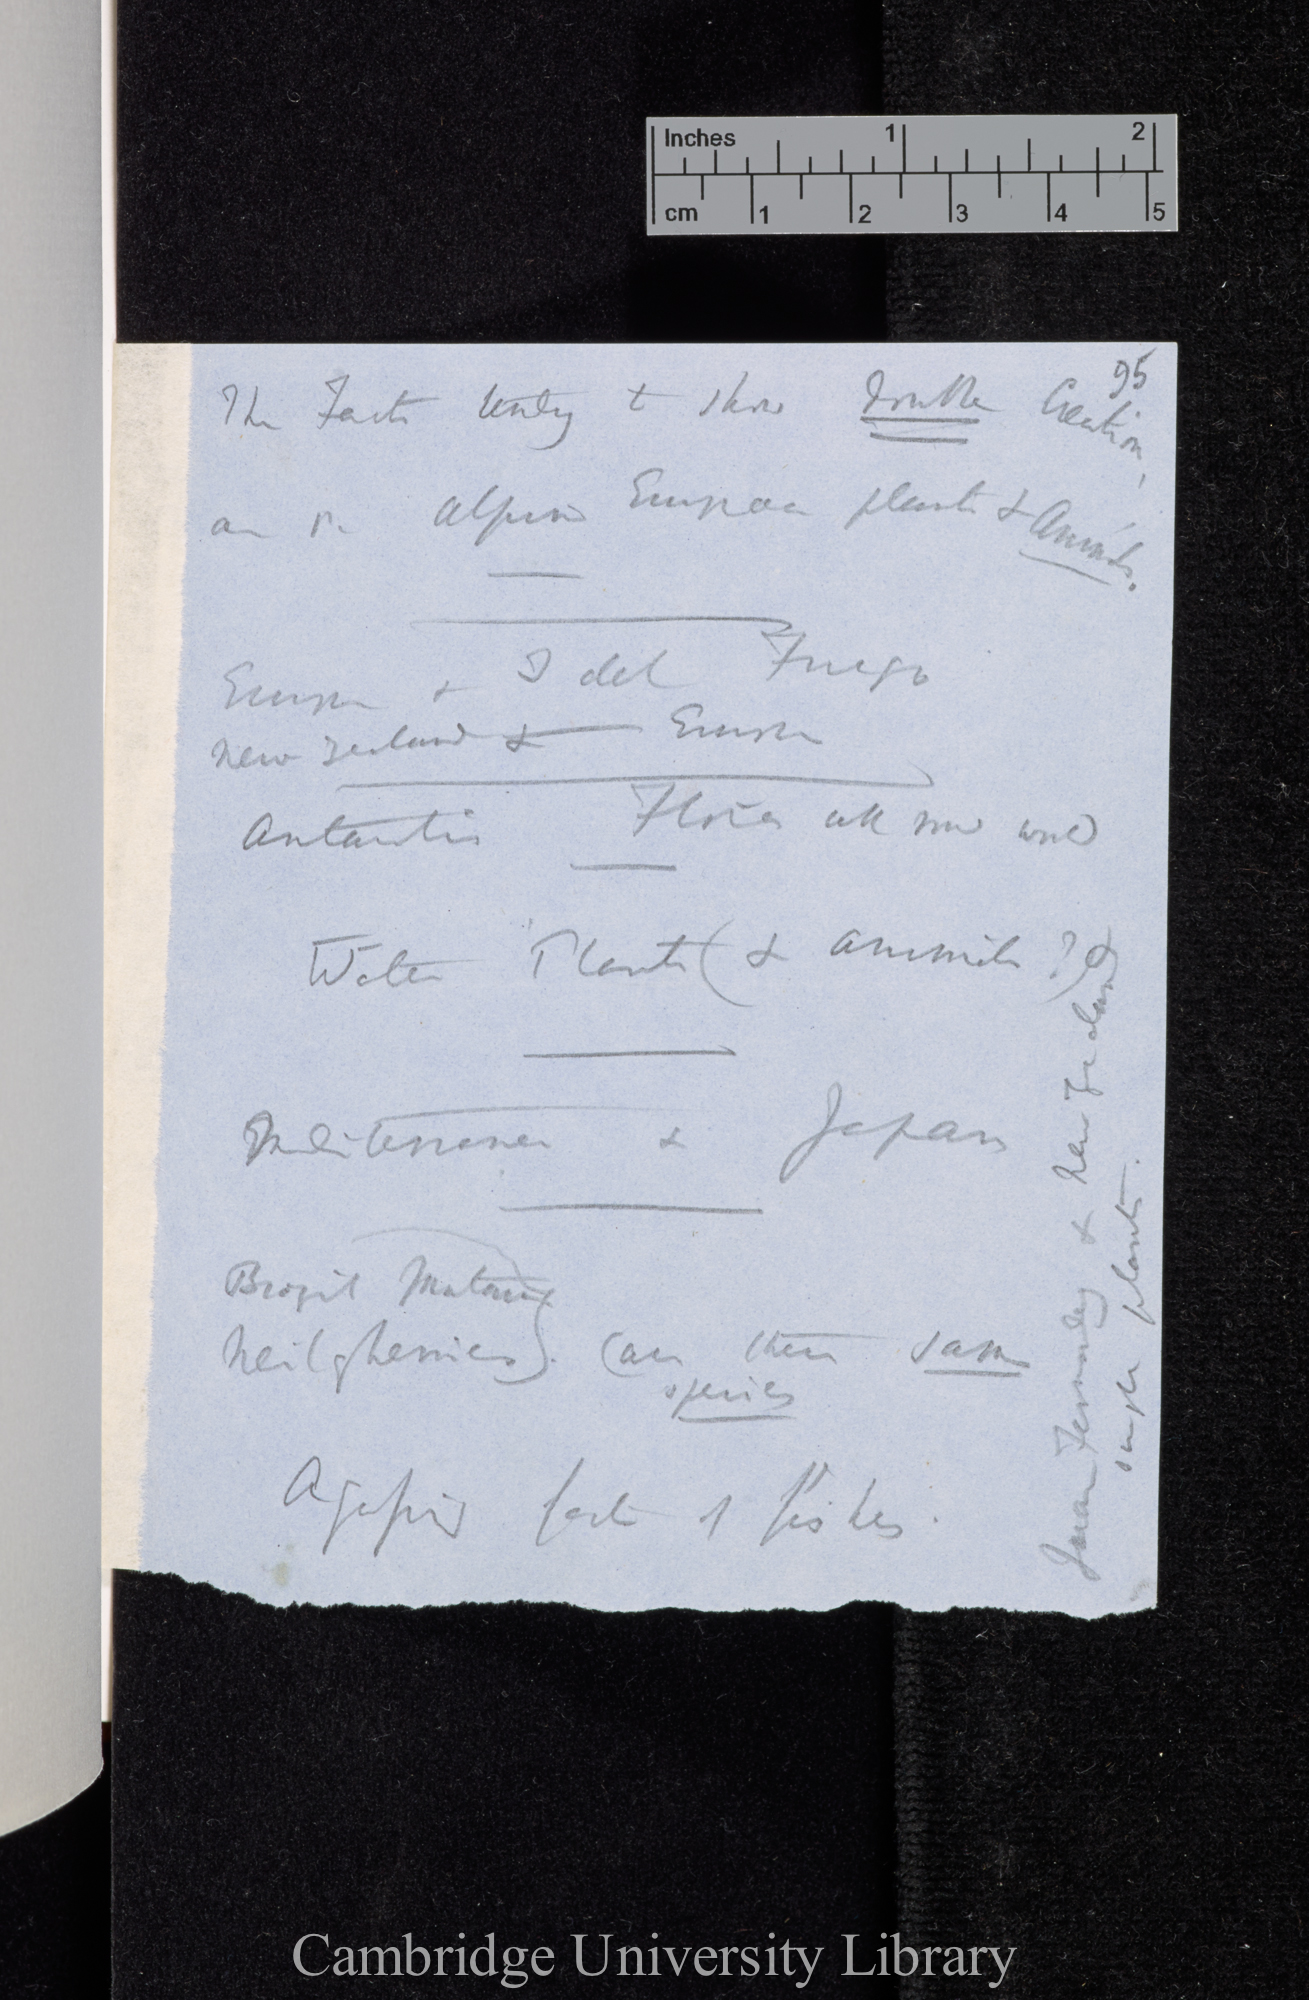 Inches 1 2
cm 1 2 3 4 5
95
The Facts tendg to show double Creation,
are on Alpine European plants & Animals.
Europe & T del Fuego
New Zealand & Europe
Antarctic Floras all now
Water Plants (& animals?)
Mediterranean & Japan
Brazil
Neilgherries). (are there same
species
Agassiz fact of fishes.
Juan Fernandez & New Zealand &
single plants.
Cambridge University Library